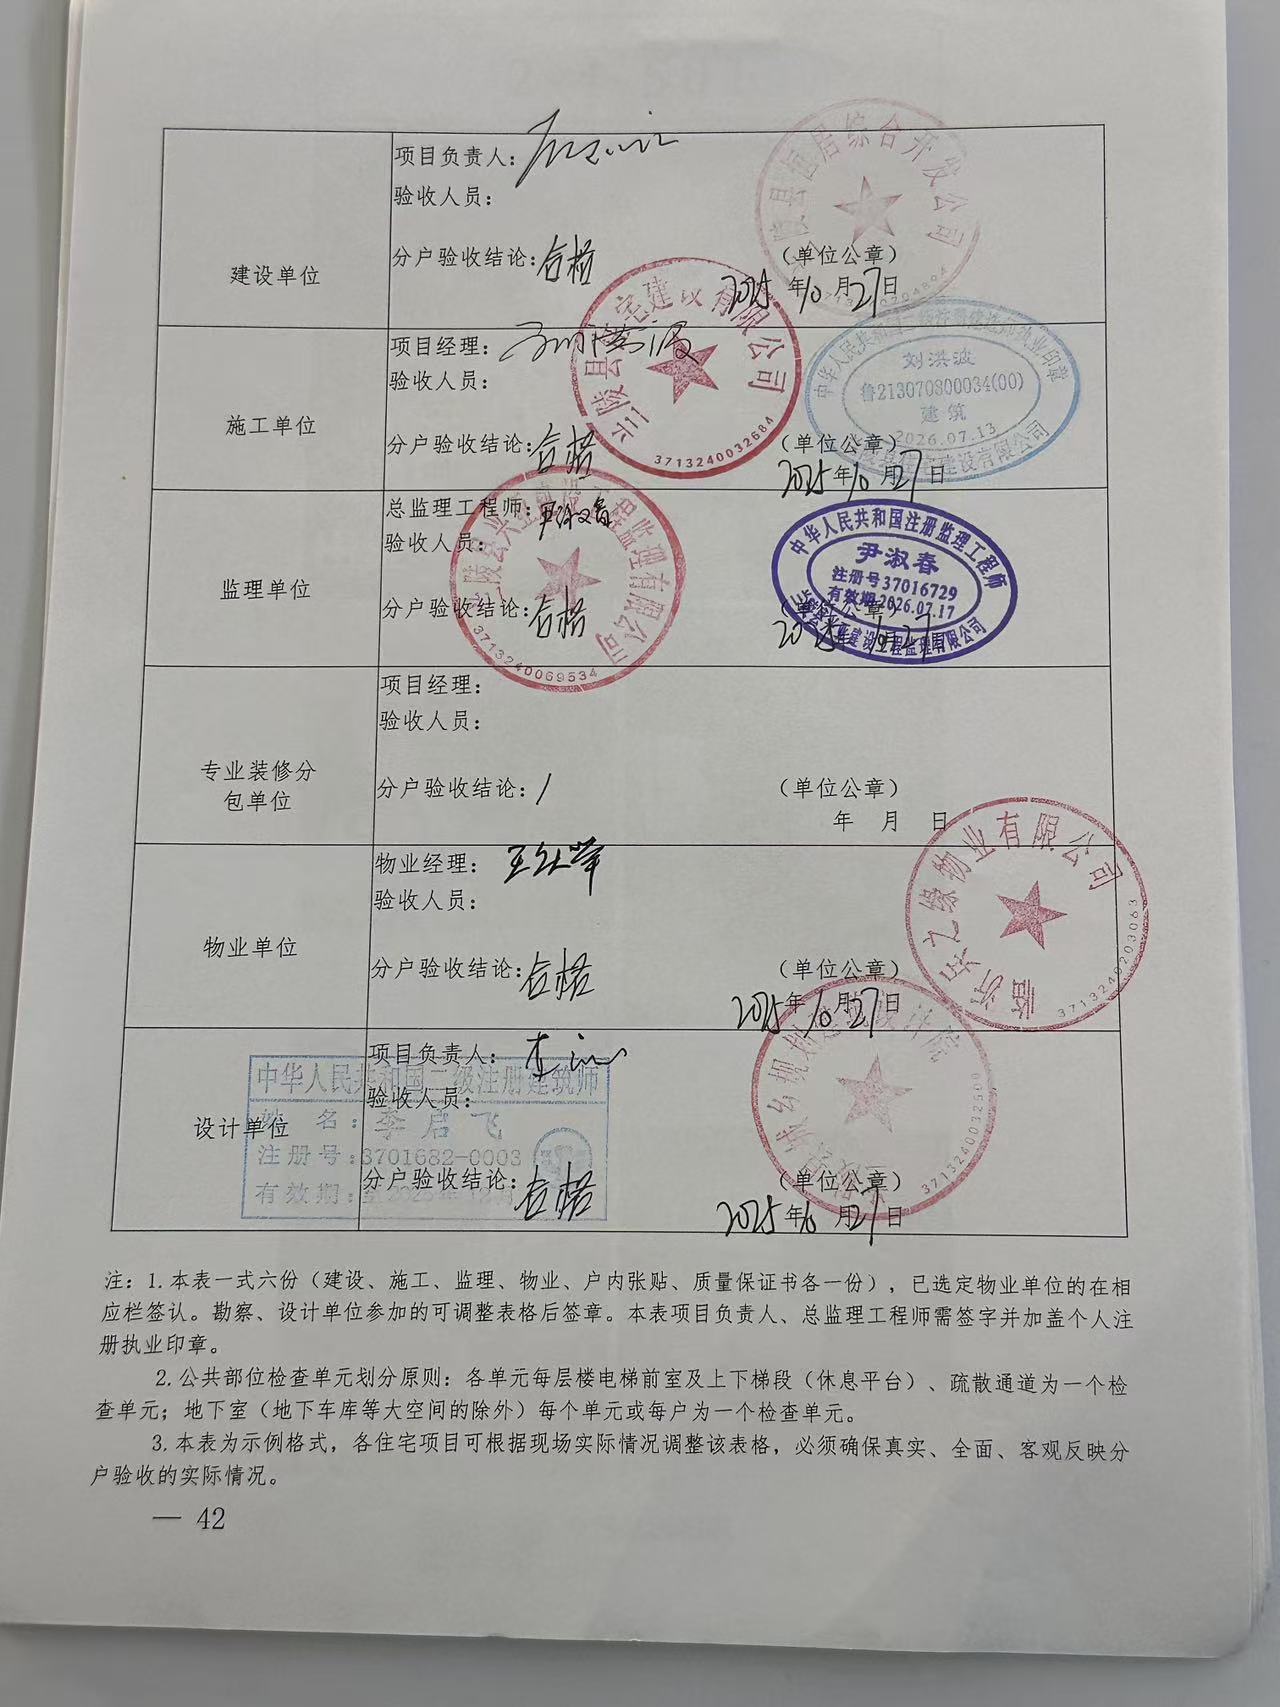 建设单位
项目负责人：
验收人员：
分户验收结论：合格
（单位公章）
2025年10月27日
居综合开发公司
施工单位
项目经理：
验收人员：
分户验收结论：合格
（单位公章）
2025年10月27日
兰陵县住宅建设有限公司
3713240032684
中华人民共和国二级注册建造师执业印章
刘洪波
鲁213070800034(00)
建筑
2026.07.13
建设有限公司
监理单位
总监理工程师：尹淑春
验收人员：
分户验收结论：合格
（单位公章）
2025年10月27日
兰陵县兴业建设工程监理有限公司
3713240069534
中华人民共和国注册监理工程师
尹淑春
注册号37016729
有效期2026.07.17
兰陵县兴业建设工程监理有限公司
专业装修分
包单位
项目经理：
验收人员：
分户验收结论：/
（单位公章）
年 月 日
物业单位
物业经理：
验收人员：
分户验收结论：合格
（单位公章）
2025年10月27日
临沂兵之缘物业有限公司
3713240203063
设计单位
项目负责人：
验收人员：
分户验收结论：合格
（单位公章）
2025年10月27日
城乡规划建筑设计院
3713240032500
中华人民共和国二级注册建筑师
姓 名：李启飞
注册号：3701682-0003
有效期：
注：1.本表一式六份（建设、施工、监理、物业、户内张贴、质量保证书各一份），已选定物业单位的在相
应栏签认。勘察、设计单位参加的可调整表格后签章。本表项目负责人、总监理工程师需签字并加盖个人注
册执业印章。
2.公共部位检查单元划分原则：各单元每层楼电梯前室及上下梯段（休息平台）、疏散通道为一个检
查单元；地下室（地下车库等大空间的除外）每个单元或每户为一个检查单元。
3.本表为示例格式，各住宅项目可根据现场实际情况调整该表格，必须确保真实、全面、客观反映分
户验收的实际情况。
— 42